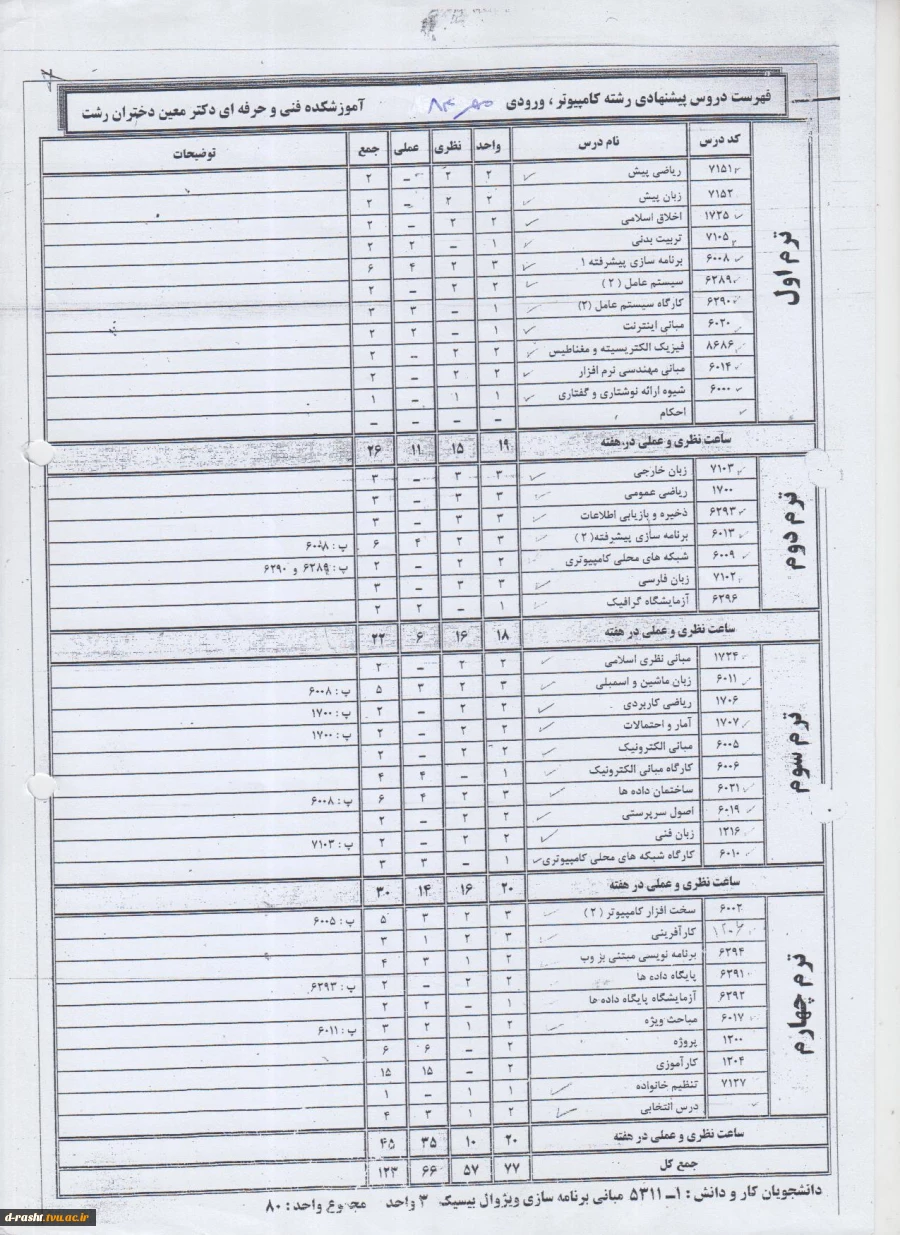 فهرست دروس پیشنهادی رشته کامپیوتر ، ورودی مهر ۸۳ آموزشکده فنی و حرفه ای دکتر معین دختران رشت
کد درس نام درس واحد نظری عملی جمع توضیحات
ترم اول
۷۱۵۱ ریاضی پیش ۲ ۲ – ۲
۷۱۵۲ زبان پیش ۲ ۲ – ۲
۱۷۲۵ اخلاق اسلامی ۲ ۲ – ۲
۷۱۰۵ تربیت بدنی ۱ – ۲ ۲
۶۰۰۸ برنامه سازی پیشرفته ۱ ۳ ۲ ۴ ۶
۶۲۸۹ سیستم عامل ( ۲ ) ۲ ۲ – ۲
۶۲۹۰ کارگاه سیستم عامل (۲) ۱ – ۳ ۳
۶۰۲۰ مبانی اینترنت ۱ – ۲ ۲
۸۶۸۶ فیزیک الکتریسیته و مغناطیس ۲ ۲ – ۲
۶۰۱۴ مبانی مهندسی نرم افزار ۲ ۲ – ۲
۶۰۰۰ شیوه ارائه نوشتاری و گفتاری ۱ ۱ – ۱
احکام – – – –
ساعت نظری و عملی در هفته ۱۹ ۱۵ ۱۱ ۲۶
ترم دوم
۷۱۰۳ زبان خارجی ۳ ۳ – ۳
۱۷۰۰ ریاضی عمومی ۳ ۳ – ۳
۶۲۹۳ ذخیره و بازیابی اطلاعات ۳ ۳ – ۳
۶۰۱۳ برنامه سازی پیشرفته( ۲ ) ۳ ۲ ۴ ۶ پ : ۶۰۰۸
۶۰۰۹ شبکه های محلی کامپیوتری ۲ ۲ – ۲ پ : ۶۲۸۹ و ۶۲۹۰
۷۱۰۲ زبان فارسی ۳ ۳ – ۳
۶۲۹۶ آزمایشگاه گرافیک ۱ – ۲ ۲
ساعت نظری و عملی در هفته ۱۸ ۱۶ ۶ ۲۲
ترم سوم
۱۷۲۴ مبانی نظری اسلامی ۲ ۲ – ۲
۶۰۱۱ زبان ماشین و اسمبلی ۳ ۲ ۳ ۵ پ : ۶۰۰۸
۱۷۰۶ ریاضی کاربردی ۲ ۲ – ۲ پ : ۱۷۰۰
۱۷۰۷ آمار و احتمالات ۲ ۲ – ۲ پ : ۱۷۰۰
۶۰۰۵ مبانی الکترونیک ۲ ۲ – ۲
۶۰۰۶ کارگاه مبانی الکترونیک ۱ – ۴ ۴
۶۰۲۱ ساختمان داده ها ۳ ۲ ۴ ۶ پ : ۶۰۰۸
۶۰۱۹ اصول سرپرستی ۲ ۲ – ۲
۱۲۱۶ زبان فنی ۲ ۲ – ۲ پ : ۷۱۰۳
۶۰۱۰ کارگاه شبکه های محلی کامپیوتری ۱ – ۳ ۳
ساعت نظری و عملی در هفته ۲۰ ۱۶ ۱۴ ۳۰
ترم چهارم
۶۰۰۲ سخت افزار کامپیوتر ( ۲ ) ۳ ۲ ۳ ۵ پ : ۶۰۰۵
۱۲۰۶ کارآفرینی ۳ ۲ ۱ ۳
۶۲۹۴ برنامه نویسی مبتنی بر وب ۲ ۱ ۳ ۴
۶۲۹۱ پایگاه داده ها ۲ ۲ – ۲ پ : ۶۲۹۳
۶۲۹۲ آزمایشگاه پایگاه داده ها ۱ – ۲ ۲
۶۰۱۷ مباحث ویژه ۲ ۱ ۲ ۳ پ : ۶۰۱۱
۱۲۰۰ پروژه ۲ – ۶ ۶
۱۲۰۴ کارآموزی ۲ – ۱۵ ۱۵
۷۱۲۷ تنظیم خانواده ۱ ۱ – ۱
درس انتخابی ۲ ۱ ۳ ۴
ساعت نظری و عملی در هفته ۲۰ ۱۰ ۳۵ ۴۵
جمع کل ۷۷ ۵۷ ۶۶ ۱۲۳
دانشجویان کار و دانش : ۱ـ ۵۳۱۱ مبانی برنامه سازی ویژوال بیسیک ۳ واحد مجموع واحد : ۸۰
d-rasht.tvu.ac.ir